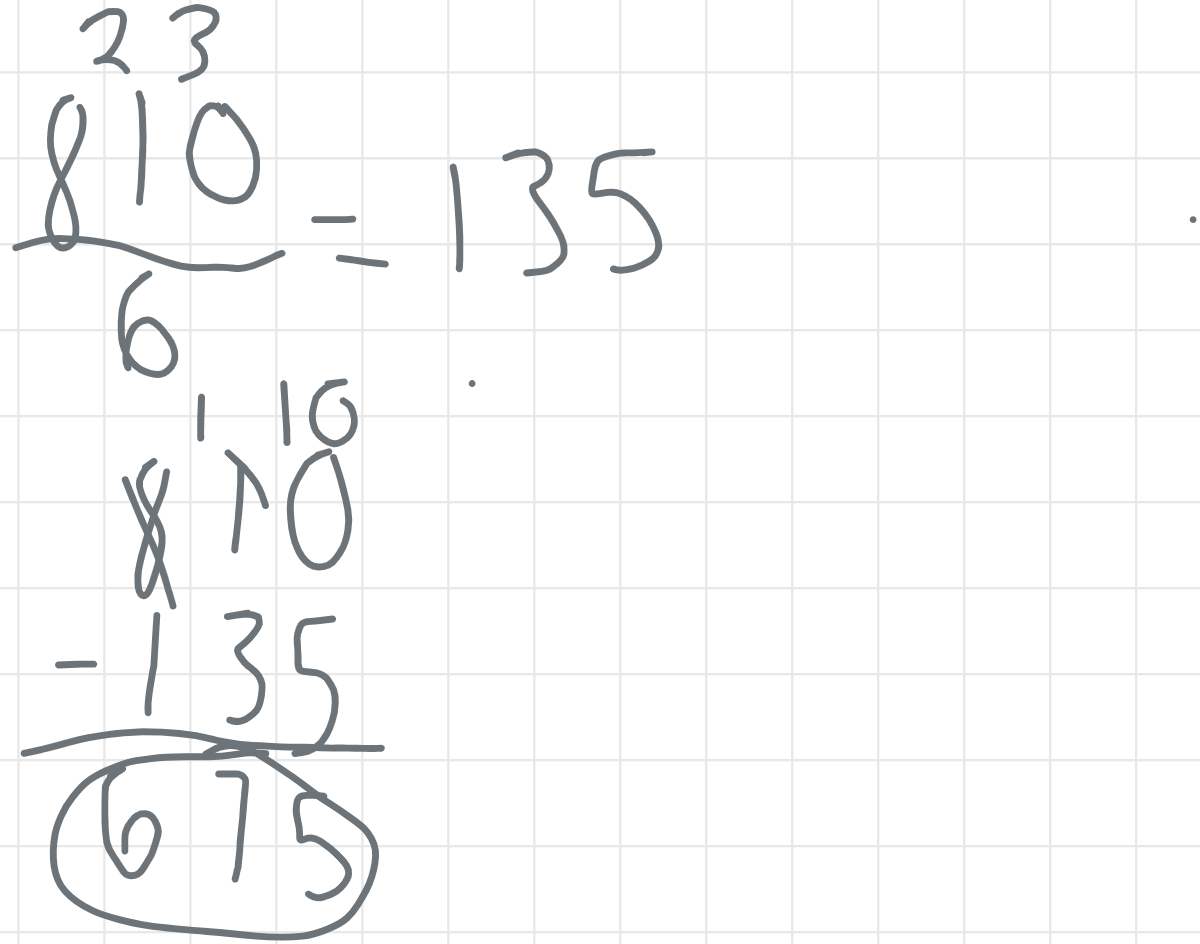 2 3
810
= 135
6
1 10
810
- 135
675